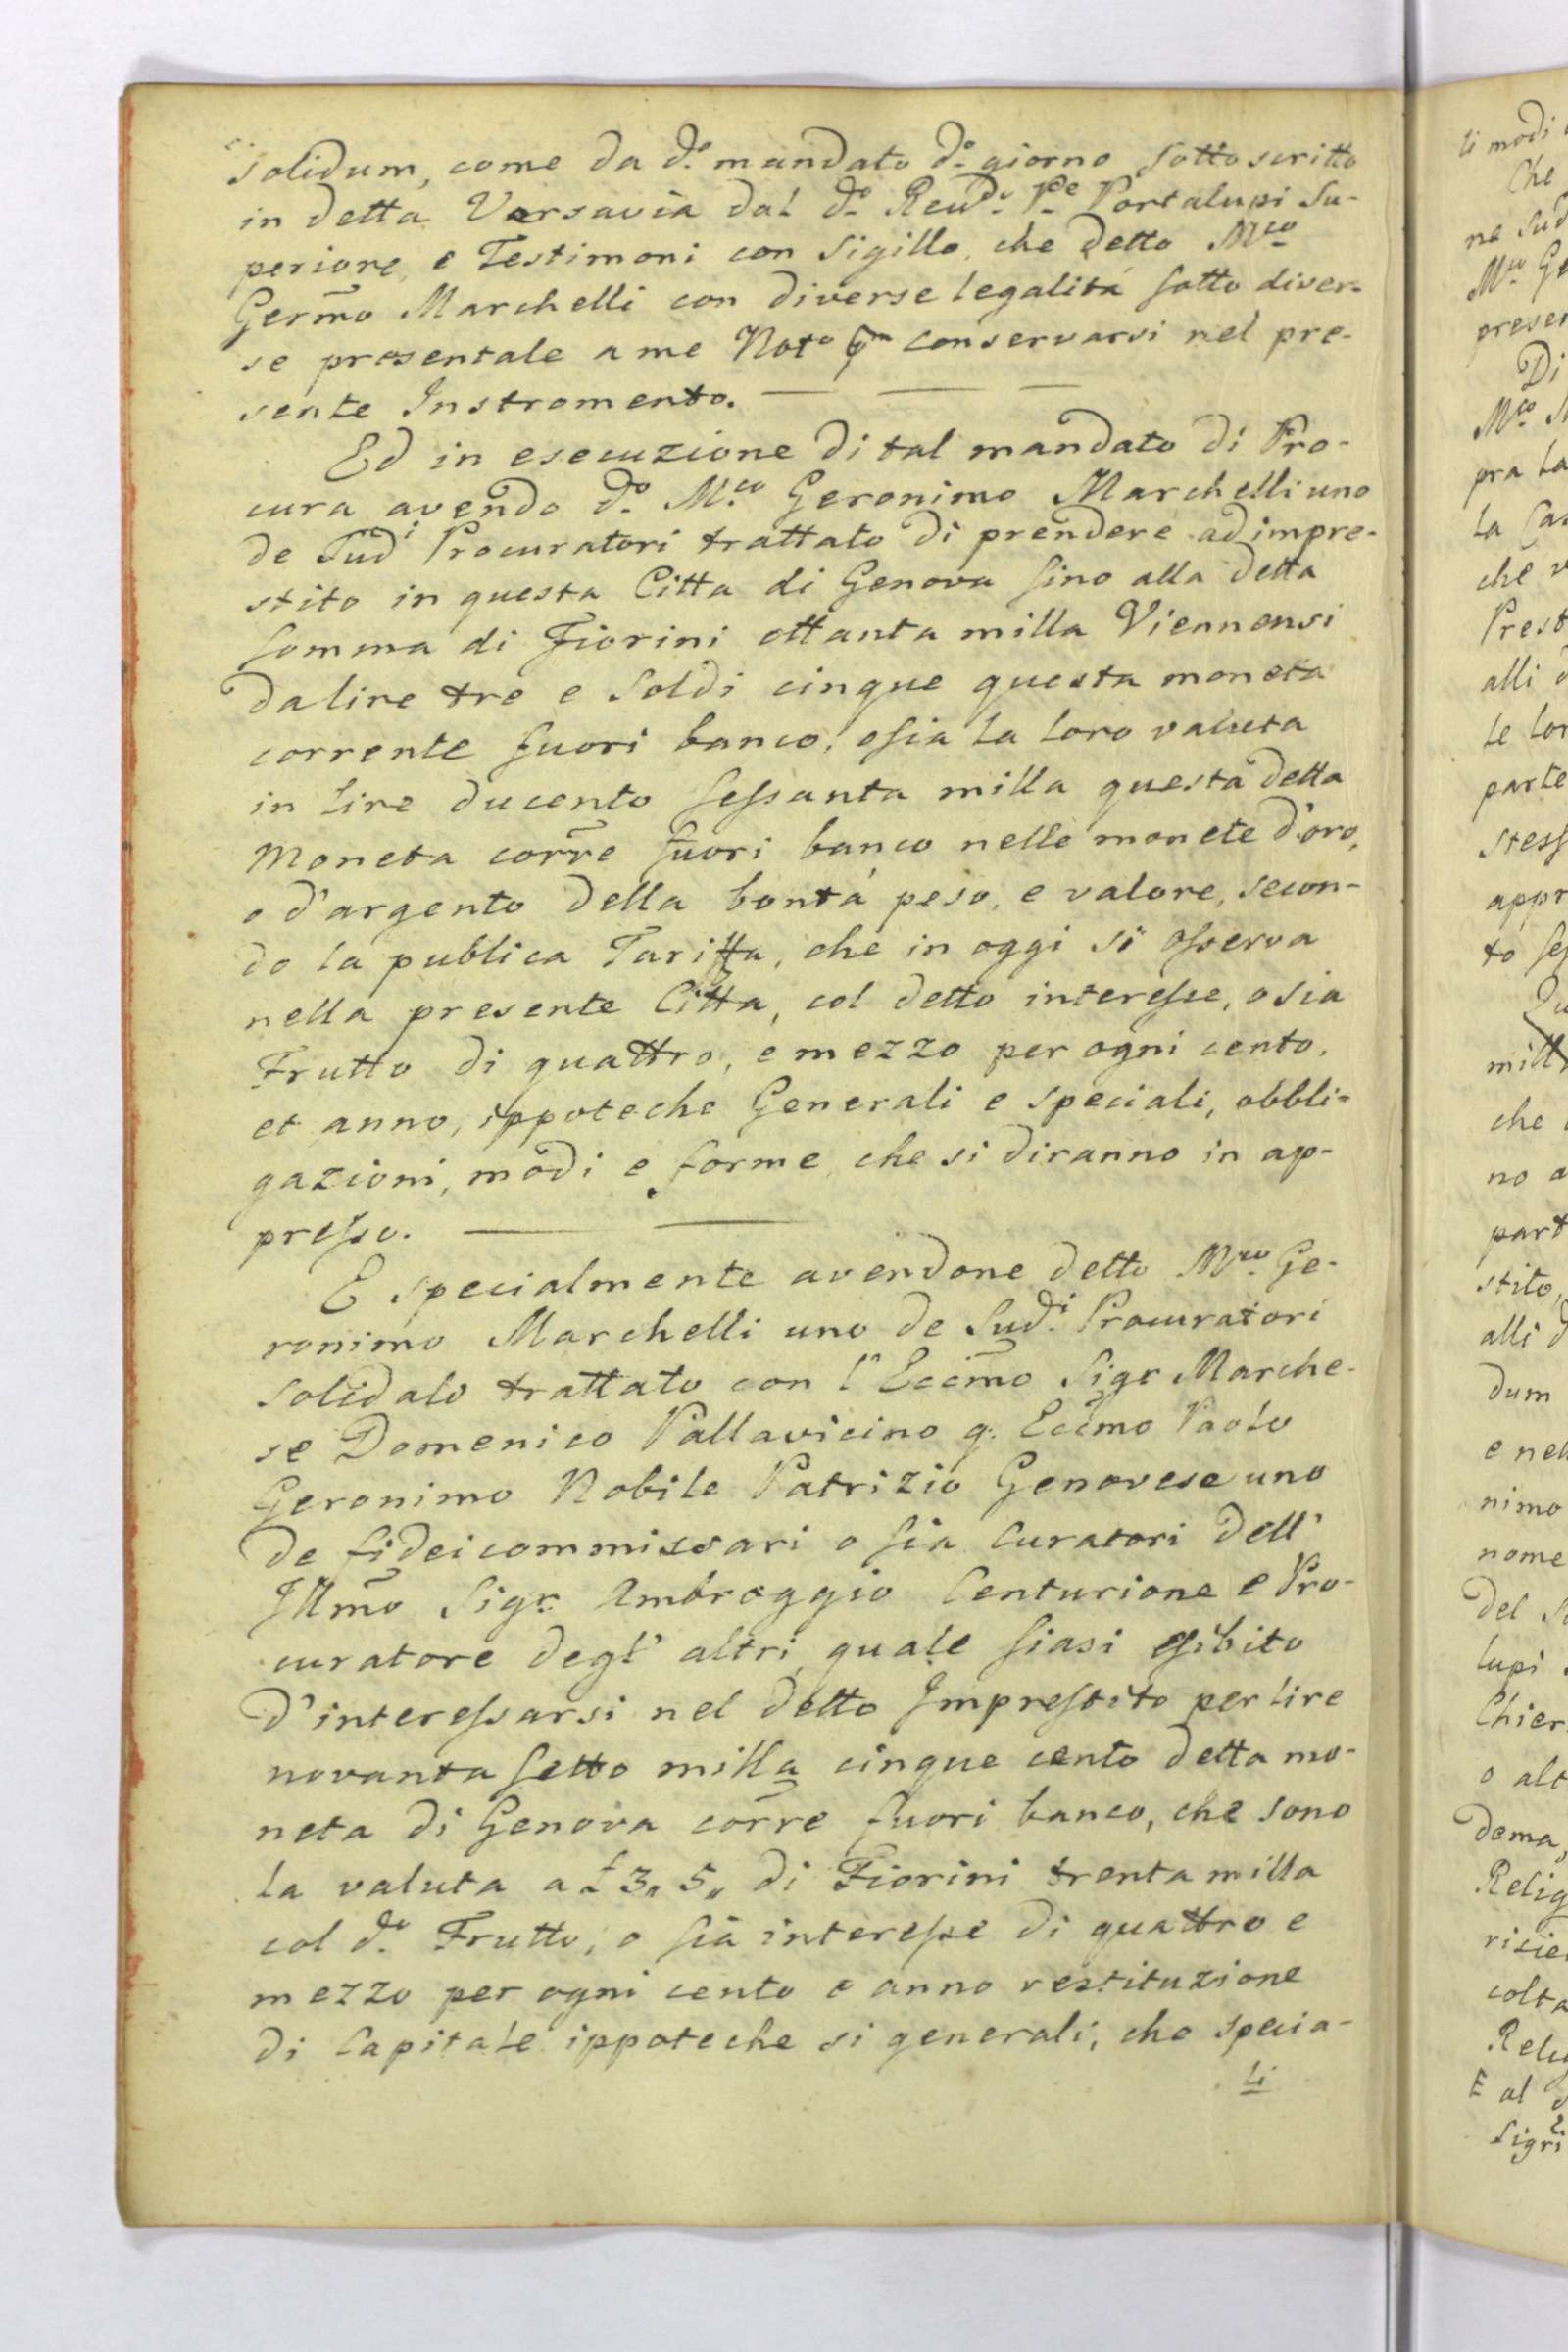 solidum, come da d.o mandato d.o giorno sottoscritto
in detta Varsavia dal d.o Reud.o P.re Portalupi Su-
periore, e Testimoni con Sigillo, che detto M.co
Germo Marchelli con diverse legalità sotto diver-
se presentale a me Not.o conservarsi nel pre-
sente Instromento.
Ed in esecuzione di tal mandato di Pro-
cura avendo d.o M.co Geronimo Marchelli uno
de Sud.i Procuratori trattato di prendere ad impre-
stito in questa Citta di Genova sino alla detta
somma di Fiorini ottanta milla Viennensi
da lire tre e soldi cinque questa moneta
corrente fuori banco, osia la loro valuta
in lire ducento sessanta milla questa detta
Moneta corre fuori banco nelle monete d'oro,
o d'argento della bontá peso, e valore, secon-
do la publica Tariffa, che in oggi si osserva
nella presente Citta, col detto interesse, osia
Frutto di quattro, e mezzo per ogni cento,
et anno, ippoteche Generali e speciali, obbli-
gazioni, modi e forme, che si diranno in ap-
presso.
E specialmente avendone detto M.co Ge-
ronimo Marchelli uno de Sud.i Procuratori
solidalo trattato con l'Eccmo Sigr Marche-
se Domenico Pallavicino q. Eccmo Paolo
Geronimo Nobile Patrizio Genovese uno
de fideicommissari o sia Curatori dell'
Illmo Sigr. Ambroggio Centurione e Pro-
curatore degl' altri, quale siasi esibito
d'interessarsi nel detto Imprestito per lire
novanta sette milla cinque cento detta mo-
neta di Genova corre fuori banco, che sono
la valuta a £ 3„ 5„ di Fiorini trenta milla
col d.o Frutto, o sia interesse di quattro e
mezzo per ogni cento e anno restituzione
di Capitale ippoteche si generali, che specia-
li
li modi
Che
na Sud
M.co Ge
presen
Di
M.co
pra la
la
che
Prest
alli
le lor
parte
stess
appr
to
mill
che
no
part
stito,
alli
dum
e nel
nimo
nome
del
lupi
Chier
o alt
dema,
Relig
colta
E al
Sigri